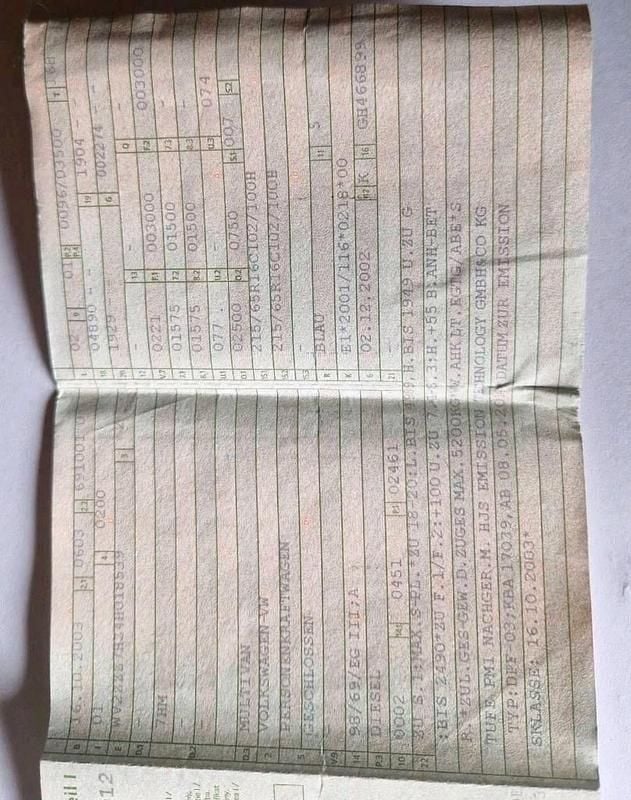 eil I
12
B 16.10.2003 2.1 0603 2.2 691001
J 01 4 0200
E 3
D.1 -
7HM
D.2 -
-
D.3 MULTIVAN
2 VOLKSWAGEN-VW
5 PERSONENKRAFTWAGEN
GESCHLOSSEN
V.9 -
14 98/69/EG III;A
P.3 DIESEL
10 0002 14.1 0451 P.1 02461
L 02 9 01 P.2 P.4 0096/03500 T
18 04890 - - 19 1904 - -
20 1929 - - G 002274 - -
12 - 13 - Q -
V.7 0221 F.1 003000 F.2 003000
7.1 01575 7.2 01500 7.3 -
8.1 01575 8.2 01500 8.3 -
U.1 077 U.2 - U.3 074
O.1 02500 O.2 0750 S.1 007 S.2 -
15.1 215/65R16C102/100H
15.2 215/65R16C102/100H
15.3 -
R BLAU 11 5
K E1*2001/116*0218*00
6 02.12.2002 17 K 16 GH466899
21 -
22 ZU S.1:MAX.S-PL.*ZU 18-20:L.BIS H:BIS 1969 U.ZU G
:BIS 2490*ZU F.1/F.2:+100 U.ZU +55 B.ANH-BET
R.*ZUL.GES-GEW.D.ZUGES MAX.5200KG*W.AHK LT.EGTG/ABE*S
TUFE PM1 NACHGER.M. HJS EMISSION TECHNOLOGY GMBH&CO KG
DATUM ZUR EMISSION
SKLASSE: 16.10.2003*